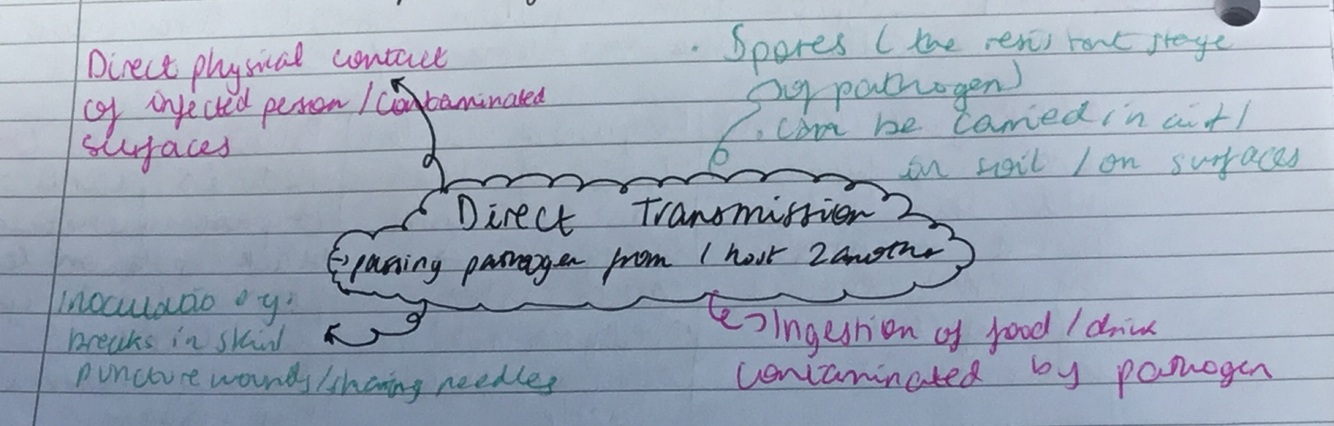 Direct physical contact
of infected person / contaminated
surfaces
· Spores ( the resistant stage
of pathogen)
· can be carried in air /
in soil / on surfaces
Direct Transmission
passing pathogen from 1 host 2 another
e.g.
breaks in skin /
puncture wounds/sharing needles
Ingestion of food / drink
contaminated by pathogen